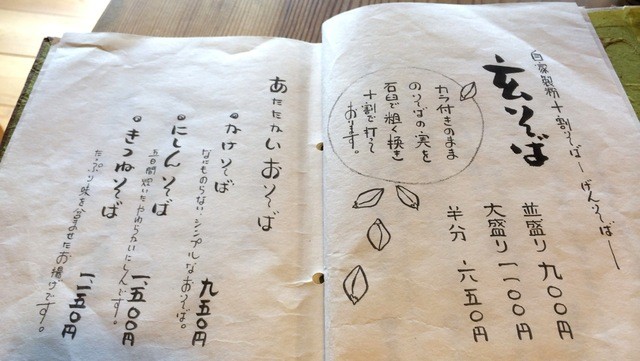 自家製粉十割そば―げんそば―
玄そば
カラ付きのまま
のそばの実を
石臼で粗く挽き
十割で打って
おります。
並盛り 九〇〇円
大盛り 一一〇〇円
半分 六五〇円
あたたかいおそば
かけそば
なにものらない、シンプルなおそば。 九五〇円
にしんそば
五日間炊いたやわらかいにしんです。 一、五〇〇円
きつねそば
たっぷり味を含ませたお揚げです。 一、一五〇円